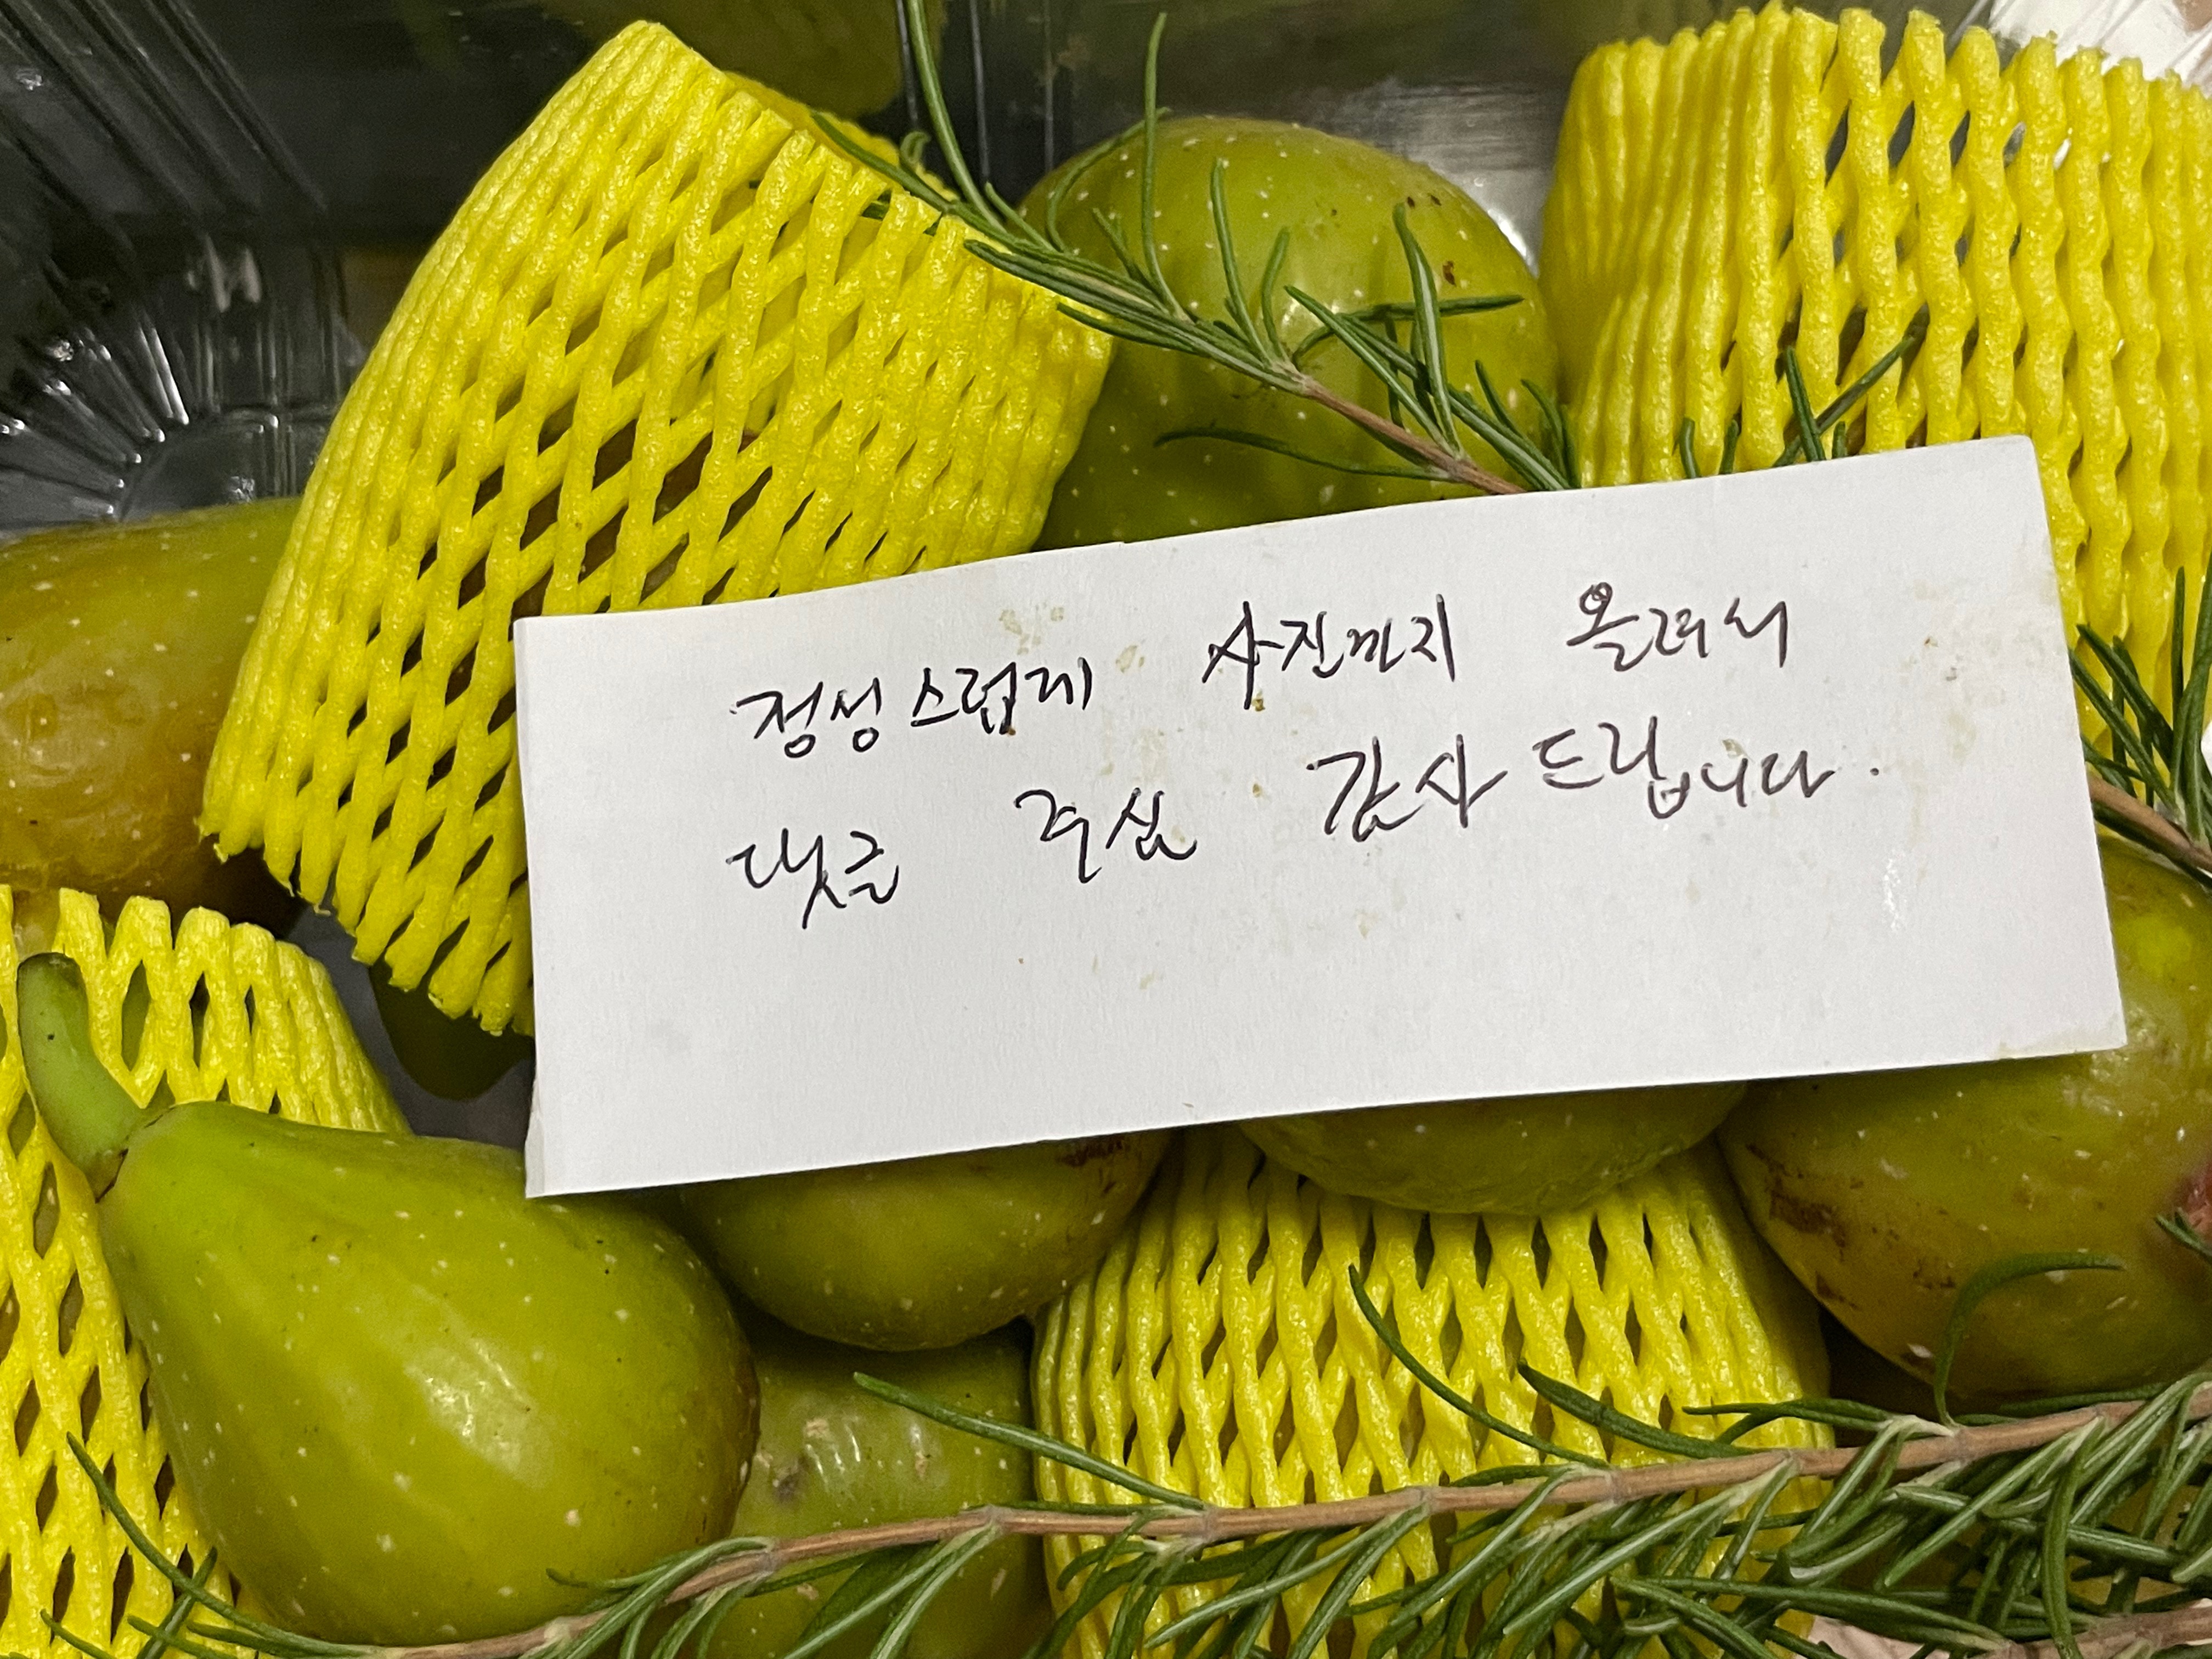 정성스럽게 사진까지 올려서
댓글 주심 감사드립니다.